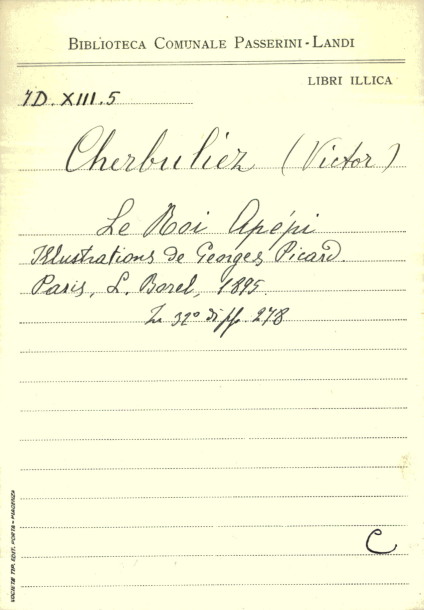 BIBLIOTECA COMUNALE PASSERINI-LANDI
LIBRI ILLICA
7D.XIII.5
Cherbuliez (Victor)
Le Roi Apépi
Illustrations de Georges Picard.
Paris, L. Borel, 1895.
In 32° di pp. 278
C
SOCIETÀ TIP. EDIT. PORTA - PIACENZA